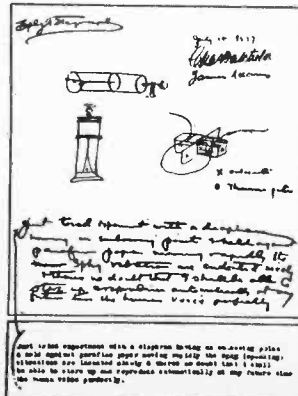 July 18 1877
James Adams
X
Just tried experiment with a diaphram
having an embossing point & held against
paraffin paper moving rapidly the
Spkg vibrations are indented nicely
& there is no doubt that I shall be able to
store up & reproduce automatically at any
future time the human voice perfectly
Just tried experiment with a diaphram having an embossing point
& held against paraffin paper moving rapidly the Spkg (speaking)
vibrations are indented nicely & theres no doubt that I shall
be able to store up and reproduce automatically at any future time
the human voice perfectly.